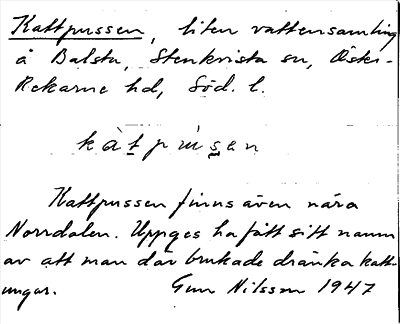 Kattpussen, liten vattensamling
å Balsta, Stenkvista sn, Öster-
Rekarne hd, Söd. l.
kàtpùsen
Kattpussen finns även nära
Norrdalen. Uppges ha fått sitt namn
av att man där brukade dränka katt-
ungar. Gun Nilsson 1947